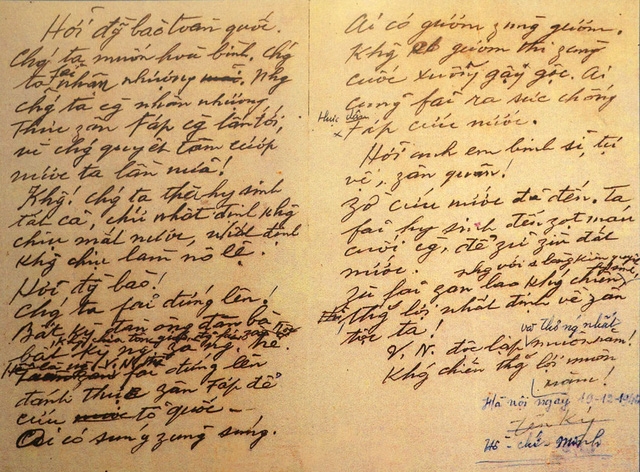 Hỡi đg bào toàn quốc.
Chg ta muốn hoà bình, chg
ta fải nhân nhượng. Nhg
chg ta cg nhân nhượng
Thực zân Fáp cg lấn tới,
vì chg quyết tâm cướp
nước ta lần nữa!
Khg! chg ta thà hy sinh
tất cả, chứ nhất định khg
chịu mất nước, nhất định
khg chịu làm nô lệ.
Hỡi đg bào!
Chg ta fải đứng lên!
Bất kỳ đàn ông đàn bà
bất kỳ
fải đứng lên
đánh thực zân Fáp để
cứu tổ quốc -
Ai có súng zùng súng.
Ai có gươm zùng gươm.
Khg có gươm thì zùng
cuốc xuổng gậy gộc. Ai
cũng fải ra sức chống
thực zân
Fáp cứu nước.
Hỡi anh em binh sĩ, tự
vệ, zân quân!
Zờ cứu nước đã đến. Ta
fải hy sinh đến zọt máu
cuối cg, để zữ zìn đất
nước.
Zù fải zan lao khg chiến
thắg lợi nhất định về zân
tộc ta!
và thống nhất
V.N. độc lập muôn năm!
Khg chiến thắg lợi muôn
năm!
Hà nội ngày 19-12-1946
Hồ-chí-Minh